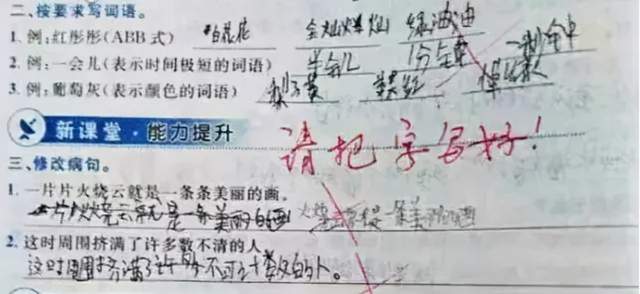 二、按要求写词语。
1. 例:红彤彤(ABB 式) 白花花 金灿灿 绿油油
2. 例:一会儿(表示时间极短的词语) 半会儿 1分钟 一秒钟
3. 例:葡萄灰(表示颜色的词语)
新课堂·能力提升
请把字写好!
三、修改病句。
1. 一片片火烧云就是一条条美丽的画。
一片火烧云就是一条美丽的画
2. 这时周围挤满了许多数不清的人。
这时周围挤满了许多不可计数的人。